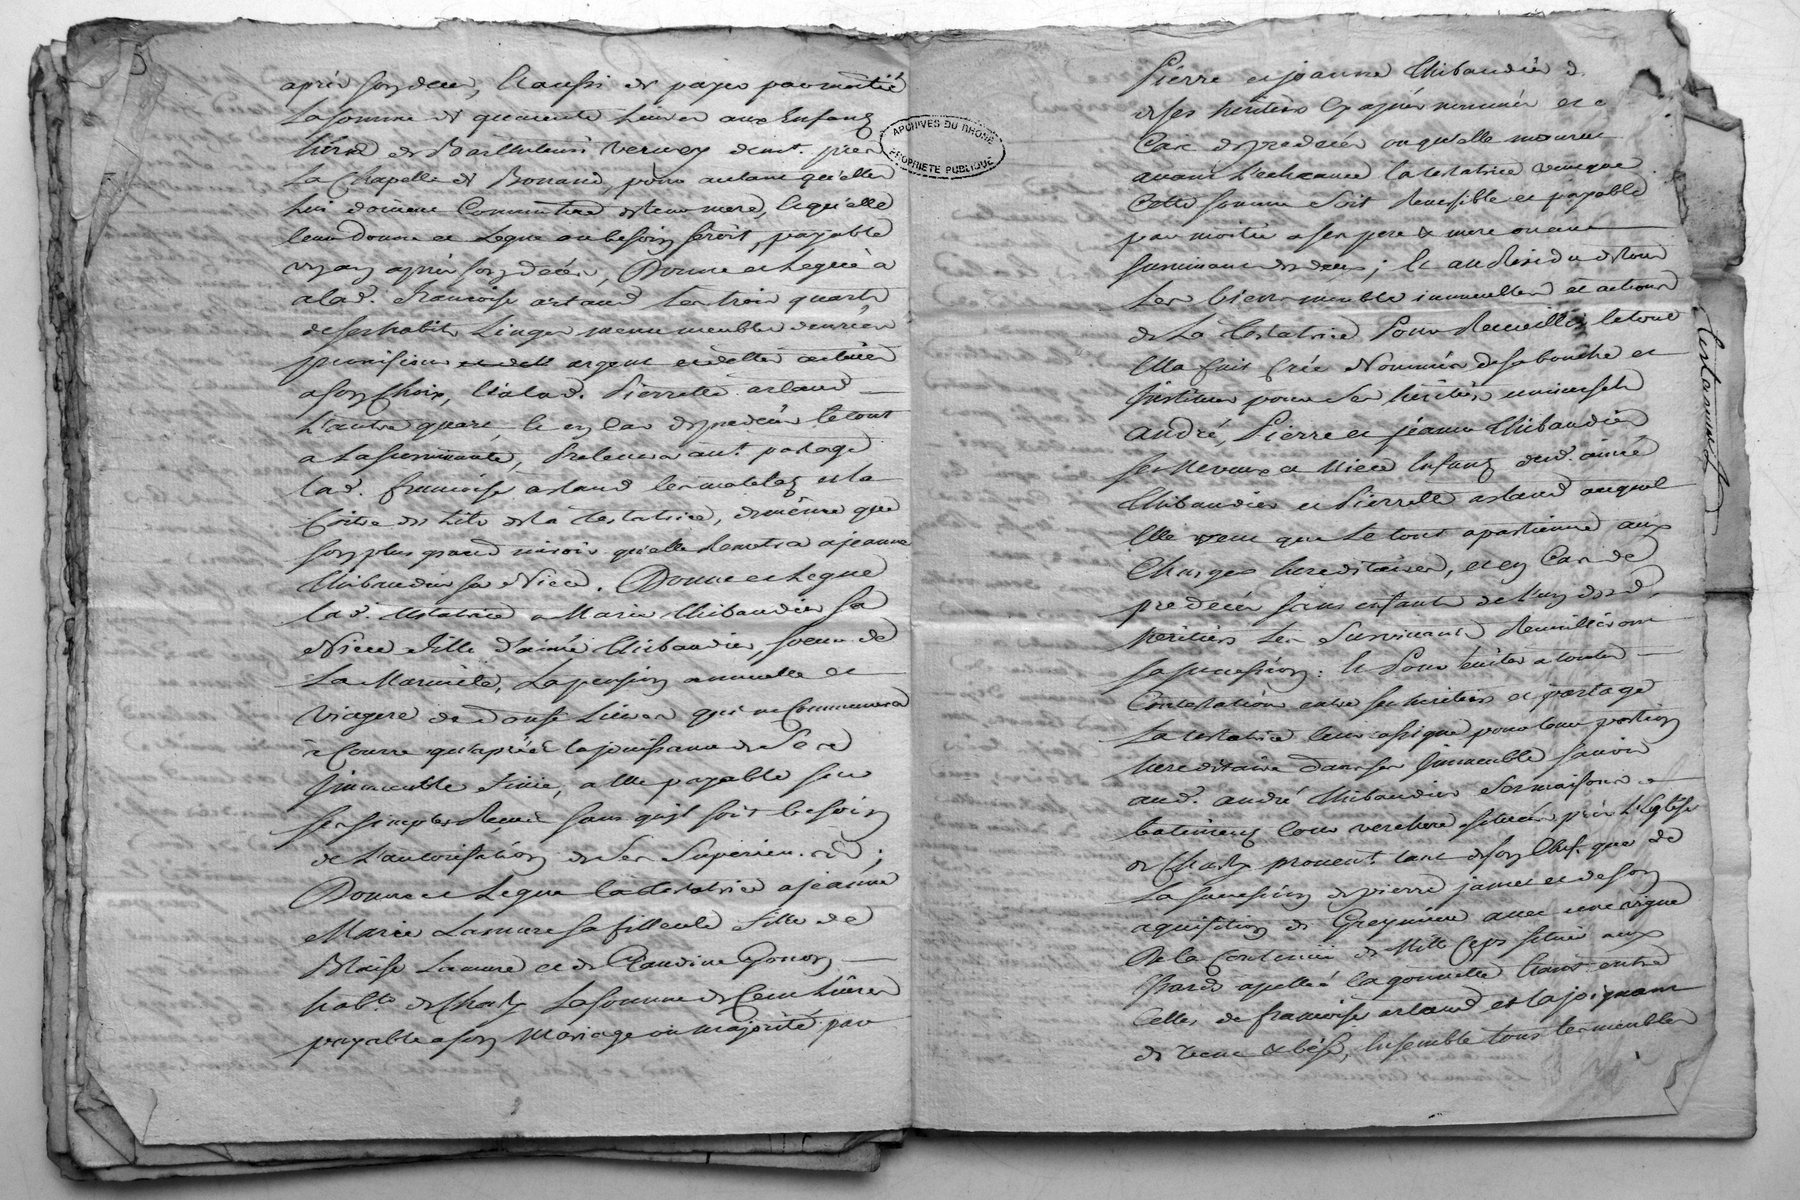 après son deces, Et aussi de payer par moitié
La somme de quarante Livres aux Enfans
de Barthelemi Verney demt. près
La Chapelle de Bonand, pour autant qu'elle
leur mere, & qu'elle
leur donne et Legue au besoin seroit, payable
un an après son decès, Donne et Legue à
a lad. françoise artaud Les trois quarts
de ses habits Linges menu meubles denrées
provisions argent et dettes actives
a son Choix, Et a lad. Pierrette artaud
L'autre quart & en cas de predeces le tout
a La survivante, Prelevera avt. partage
lad. françoise artaud les matelas et la
Coitre des Lits de la testatrice, de même que
son plus grand miroir qu'elle remettra a jeanne
thibaudier sa Niece. Donne et Legue
lad. testatrice a Marie thibaudier sa
Niece fille d'aimé thibaudier, soeur de
La Marmite, La pension annuelle et
viagere de douse Livres qui ne Commencera
a Courre qu'après la jouissance de
immeuble finie, a elle payable sur
ses simples Reçus sans qu'il soit besoin
de L'autorisation de ses Superieurs ;
Donne et Legue la testatrice a jeanne
Marie Lamure sa filleule fille de
Blaise Lamure et de Claudine Gonon
habts. de Charly La somme de Cent Livres
payable a son Mariage ou majorité par
ARCHIVES DU RHONE
PROPRIETE PUBLIQUE
Pierre et jeanne thibaudier
de ses heritiers cy après nommés et
Cas de predeces ou qu'elle mourut
avant L'echeance la testatrice veut que
Cette somme soit Reversible et payable
par moitié a ses pere & mere ou au
survivant des deux ; Et au Residu de tous
Les biens meubles immeubles et actions
de La testatrice Pour Recueillir le tout
Elle a fait Créé & Nommés de sa bouche et
institués pour ses heritiers universels
André, Pierre et jeanne thibaudier
ses Neveux et Niece Enfans dud. aimé
thibaudier et Pierrette artaud auxquels
Elle veut que Le tout apartienne aux
Charges hereditaires, et en Cas de
predeces sans enfants de L'un desd.
heritiers Les survivants Recueilliront
sa succession : Et Pour éviter a toute
Contestation entre ses heritiers et partage
La testatrice leur assigne pour leur portion
hereditaire dans ses immeubles savoir
aud. andré thibaudier ses maisons et
batimens Cour verchere situés près L'Eglise
de Charly provent. tant de son Chef. que de
La succession de pierre jamet et de son
aquisition de avec une vigne
De la Contenue de Mille Ceps située aux
Essards apellée la gonnette Etant entre
Celles de françoise artaud et la joignant
de & bise, Ensemble tous les meubles
testament